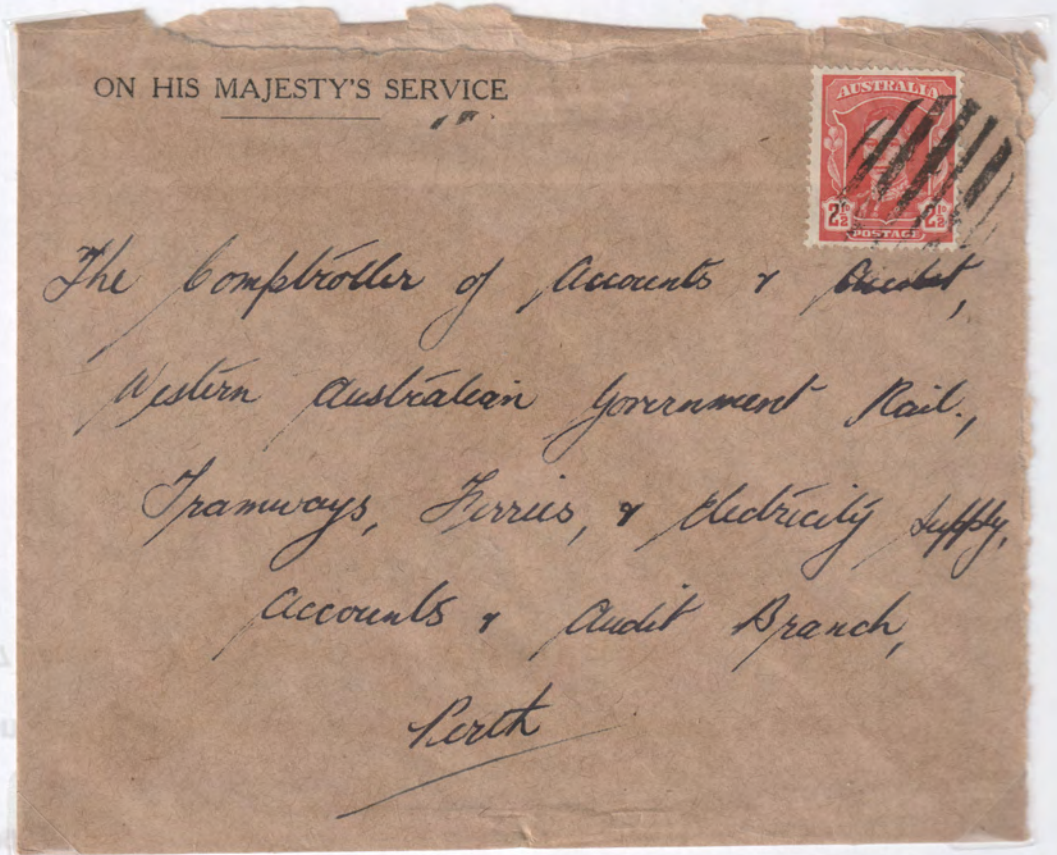 ON HIS MAJESTY'S SERVICE
AUSTRALIA
2½D 2½D
POSTAGE
The Comptroller of Accounts & Audit,
Western Australian Government Rail.,
Tramways, Ferries, & Electricity Supply,
Accounts & Audit Branch,
Perth